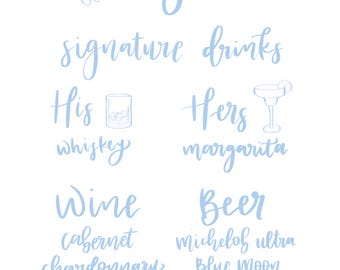 signature drinks
His
Hers
whiskey
margarita
Wine
Beer
cabernet
michelob ultra
chardonnay
Blue Moon